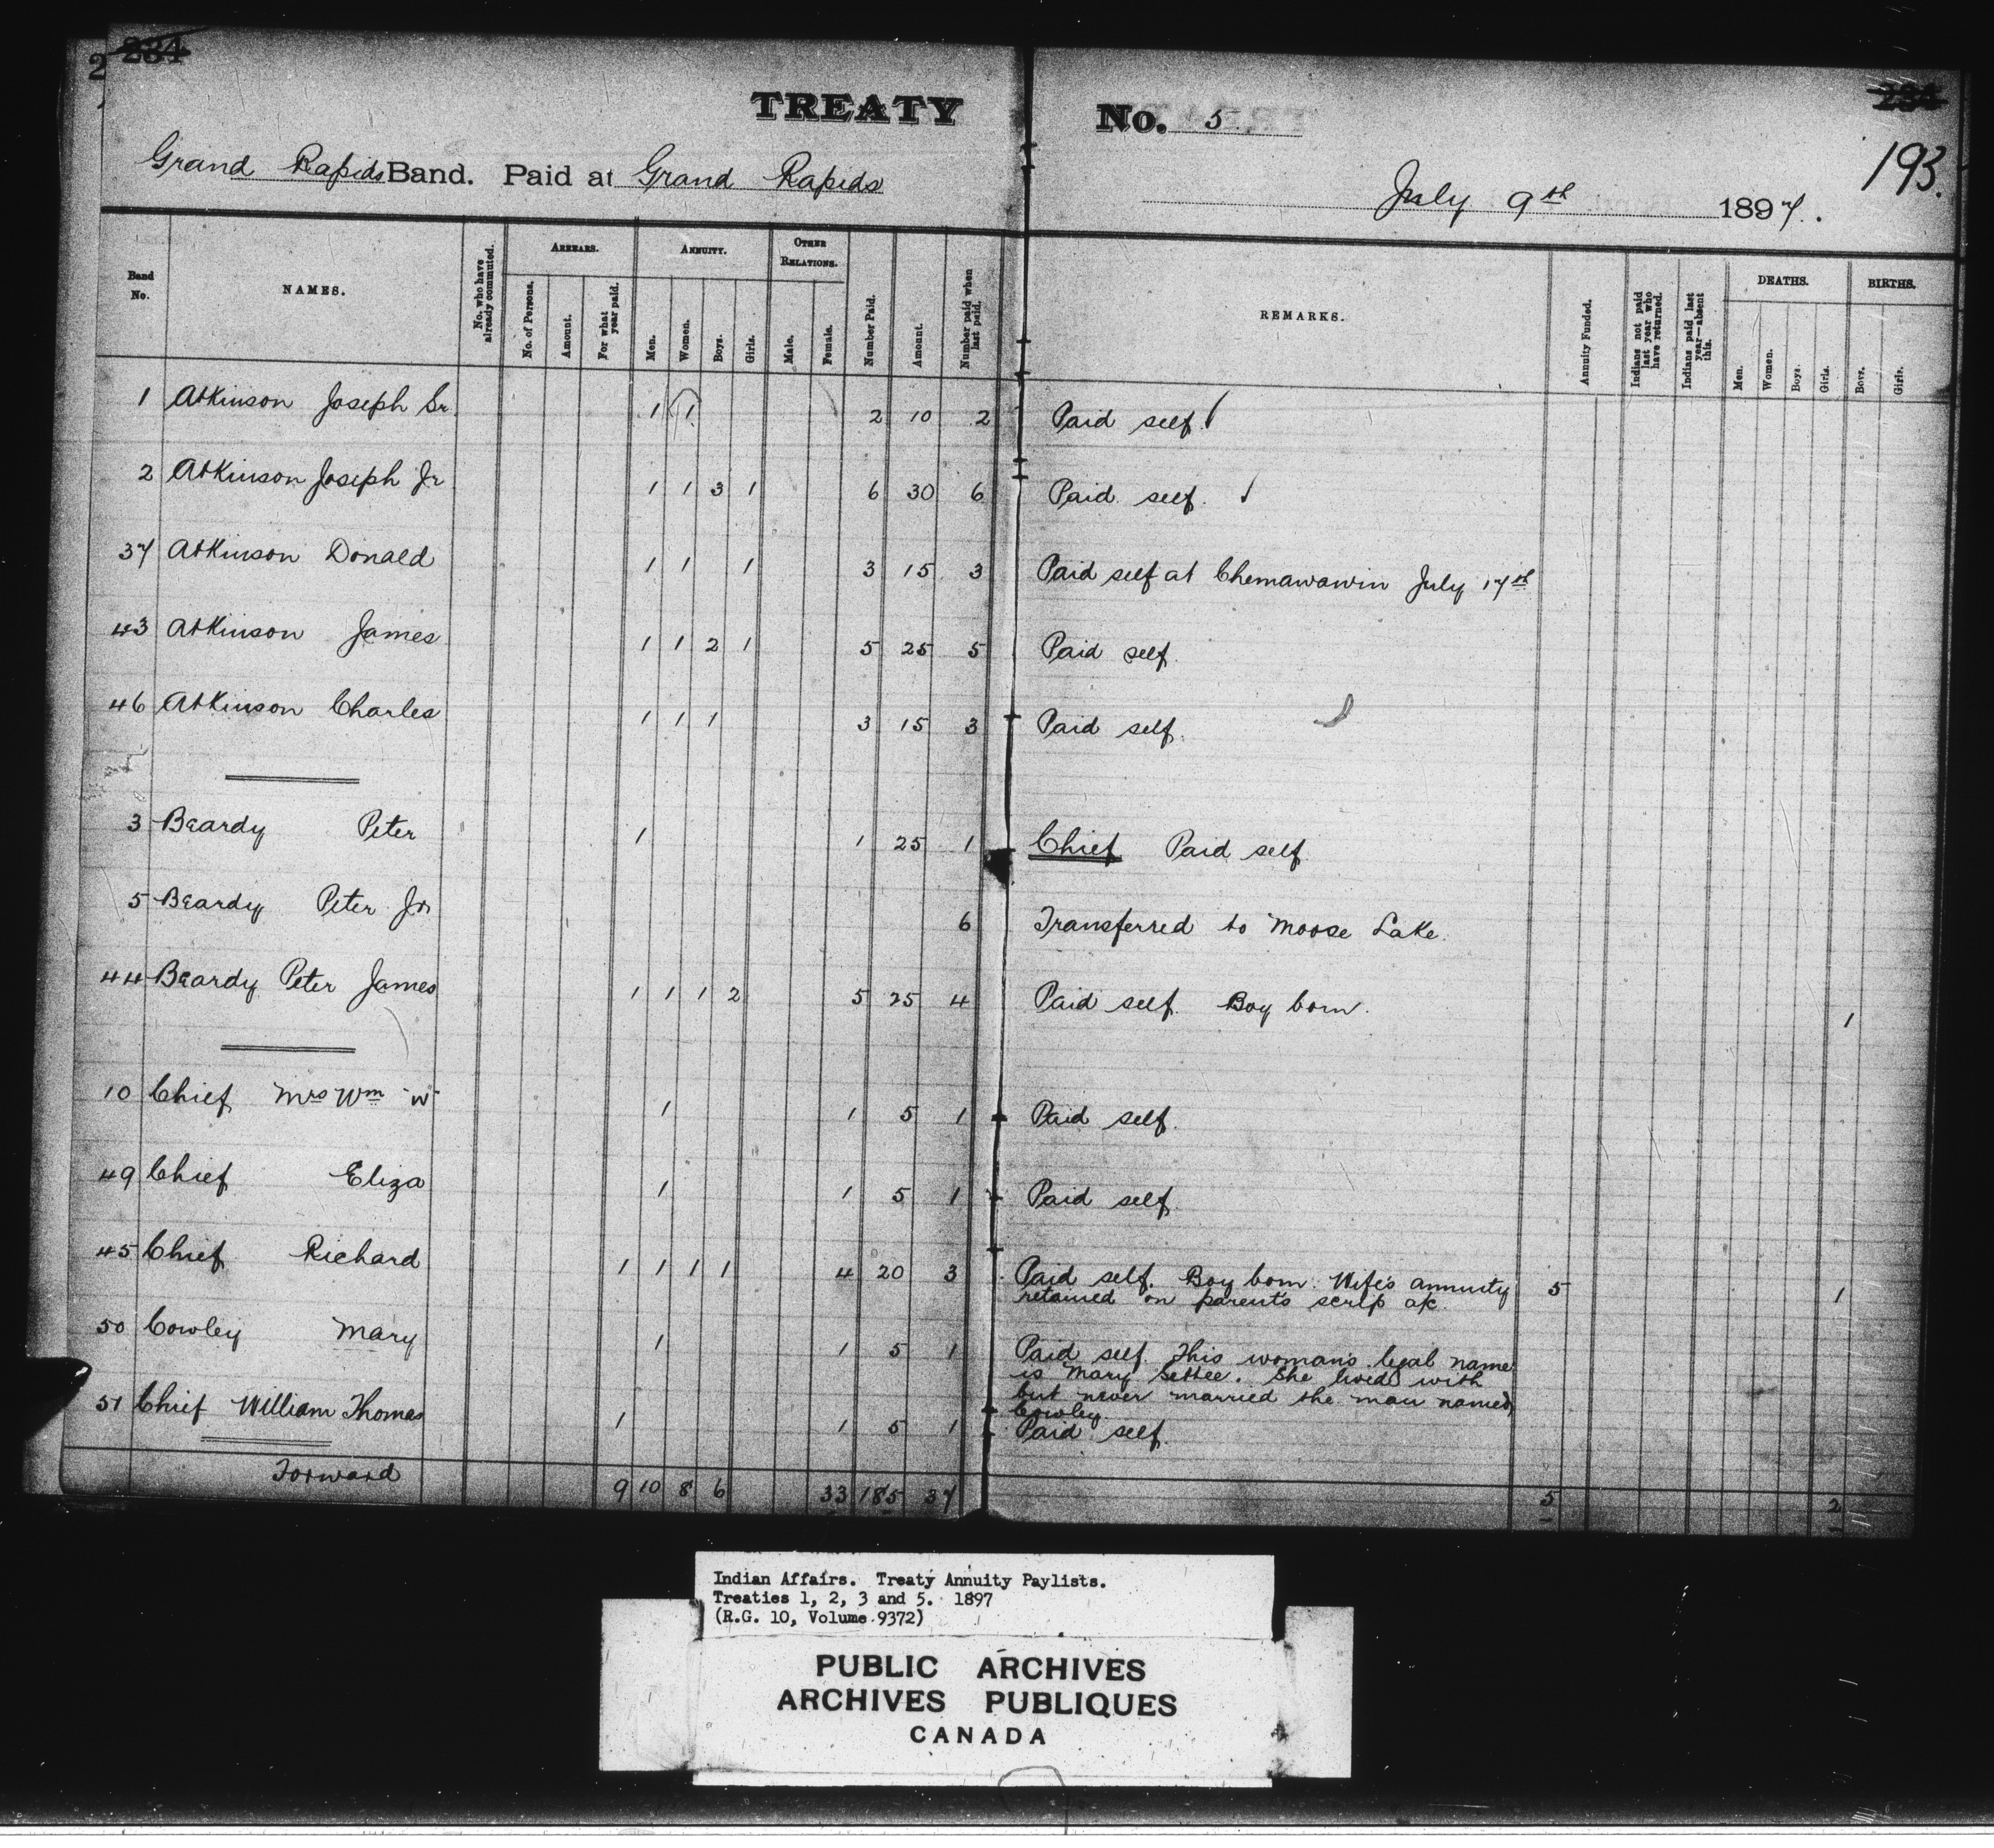 2 234
TREATY No. 5
234
193.
Grand Rapids Band. Paid at Grand Rapids
July 9th 1897.
Band No.
NAMES.
No. who have already commuted.
ARREARS.
No. of Persons.
Amount.
For what year paid.
ANNUITY.
Men.
Women.
Boys.
Girls.
OTHER RELATIONS.
Male.
Female.
Number Paid.
Amount.
Number paid when last paid.
REMARKS.
Annuity Funded.
Indians not paid last year who have returned.
Indians paid last year—absent this.
DEATHS.
Men.
Women.
Boys.
Girls.
BIRTHS.
Boys.
Girls.
1 Atkinson Joseph Sr 1 1 2 10 2 Paid self
2 Atkinson Joseph Jr 1 1 3 1 6 30 6 Paid self.
37 Atkinson Donald 1 1 1 3 15 3 Paid self at Chemawawin July 17th
43 Atkinson James 1 1 2 1 5 25 5 Paid self.
46 Atkinson Charles 1 1 1 3 15 3 Paid self.
3 Beardy Peter 1 1 25 1 Chief Paid self.
5 Beardy Peter Jr 6 Transferred to Moose Lake.
44 Beardy Peter James 1 1 1 2 5 25 4 Paid self. Boy born. 1
10 Chief Mrs Wm W 1 1 5 1 Paid self.
49 Chief Eliza 1 1 5 1 Paid self.
45 Chief Richard 1 1 1 1 4 20 3 Paid self. Boy born. Wife's annuity 5
retained on parents scrip a/c. 1
50 Cowley Mary 1 1 5 1 Paid self. This woman's legal name
is Mary Settee. She lived with
but never married the man named
Cowley.
51 Chief William Thomas 1 1 5 1 Paid self.
Forward 9 10 8 6 33 185 37 5 2
Indian Affairs. Treaty Annuity Paylists.
Treaties 1, 2, 3 and 5. 1897
(R.G. 10, Volume 9372)
PUBLIC ARCHIVES
ARCHIVES PUBLIQUES
CANADA